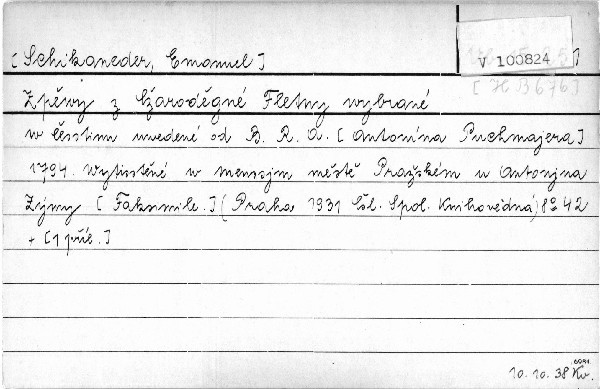 [Schikaneder, Emanuel]
V 100824
[H B 676]
Zpěwy z Čzaroděgné Fletny wybrané
w česstinu uwedené od B. R. A. [Antonína Puchmajera]
1794. Wytisstěné w menssjm městě Pražském u Antonjna
Zýmy [Faksimile.] (Praha 1931 Čsl. Spol. Knihovědná) 8° 42
+ [1 příl.]
10. 10. 38 Kv.